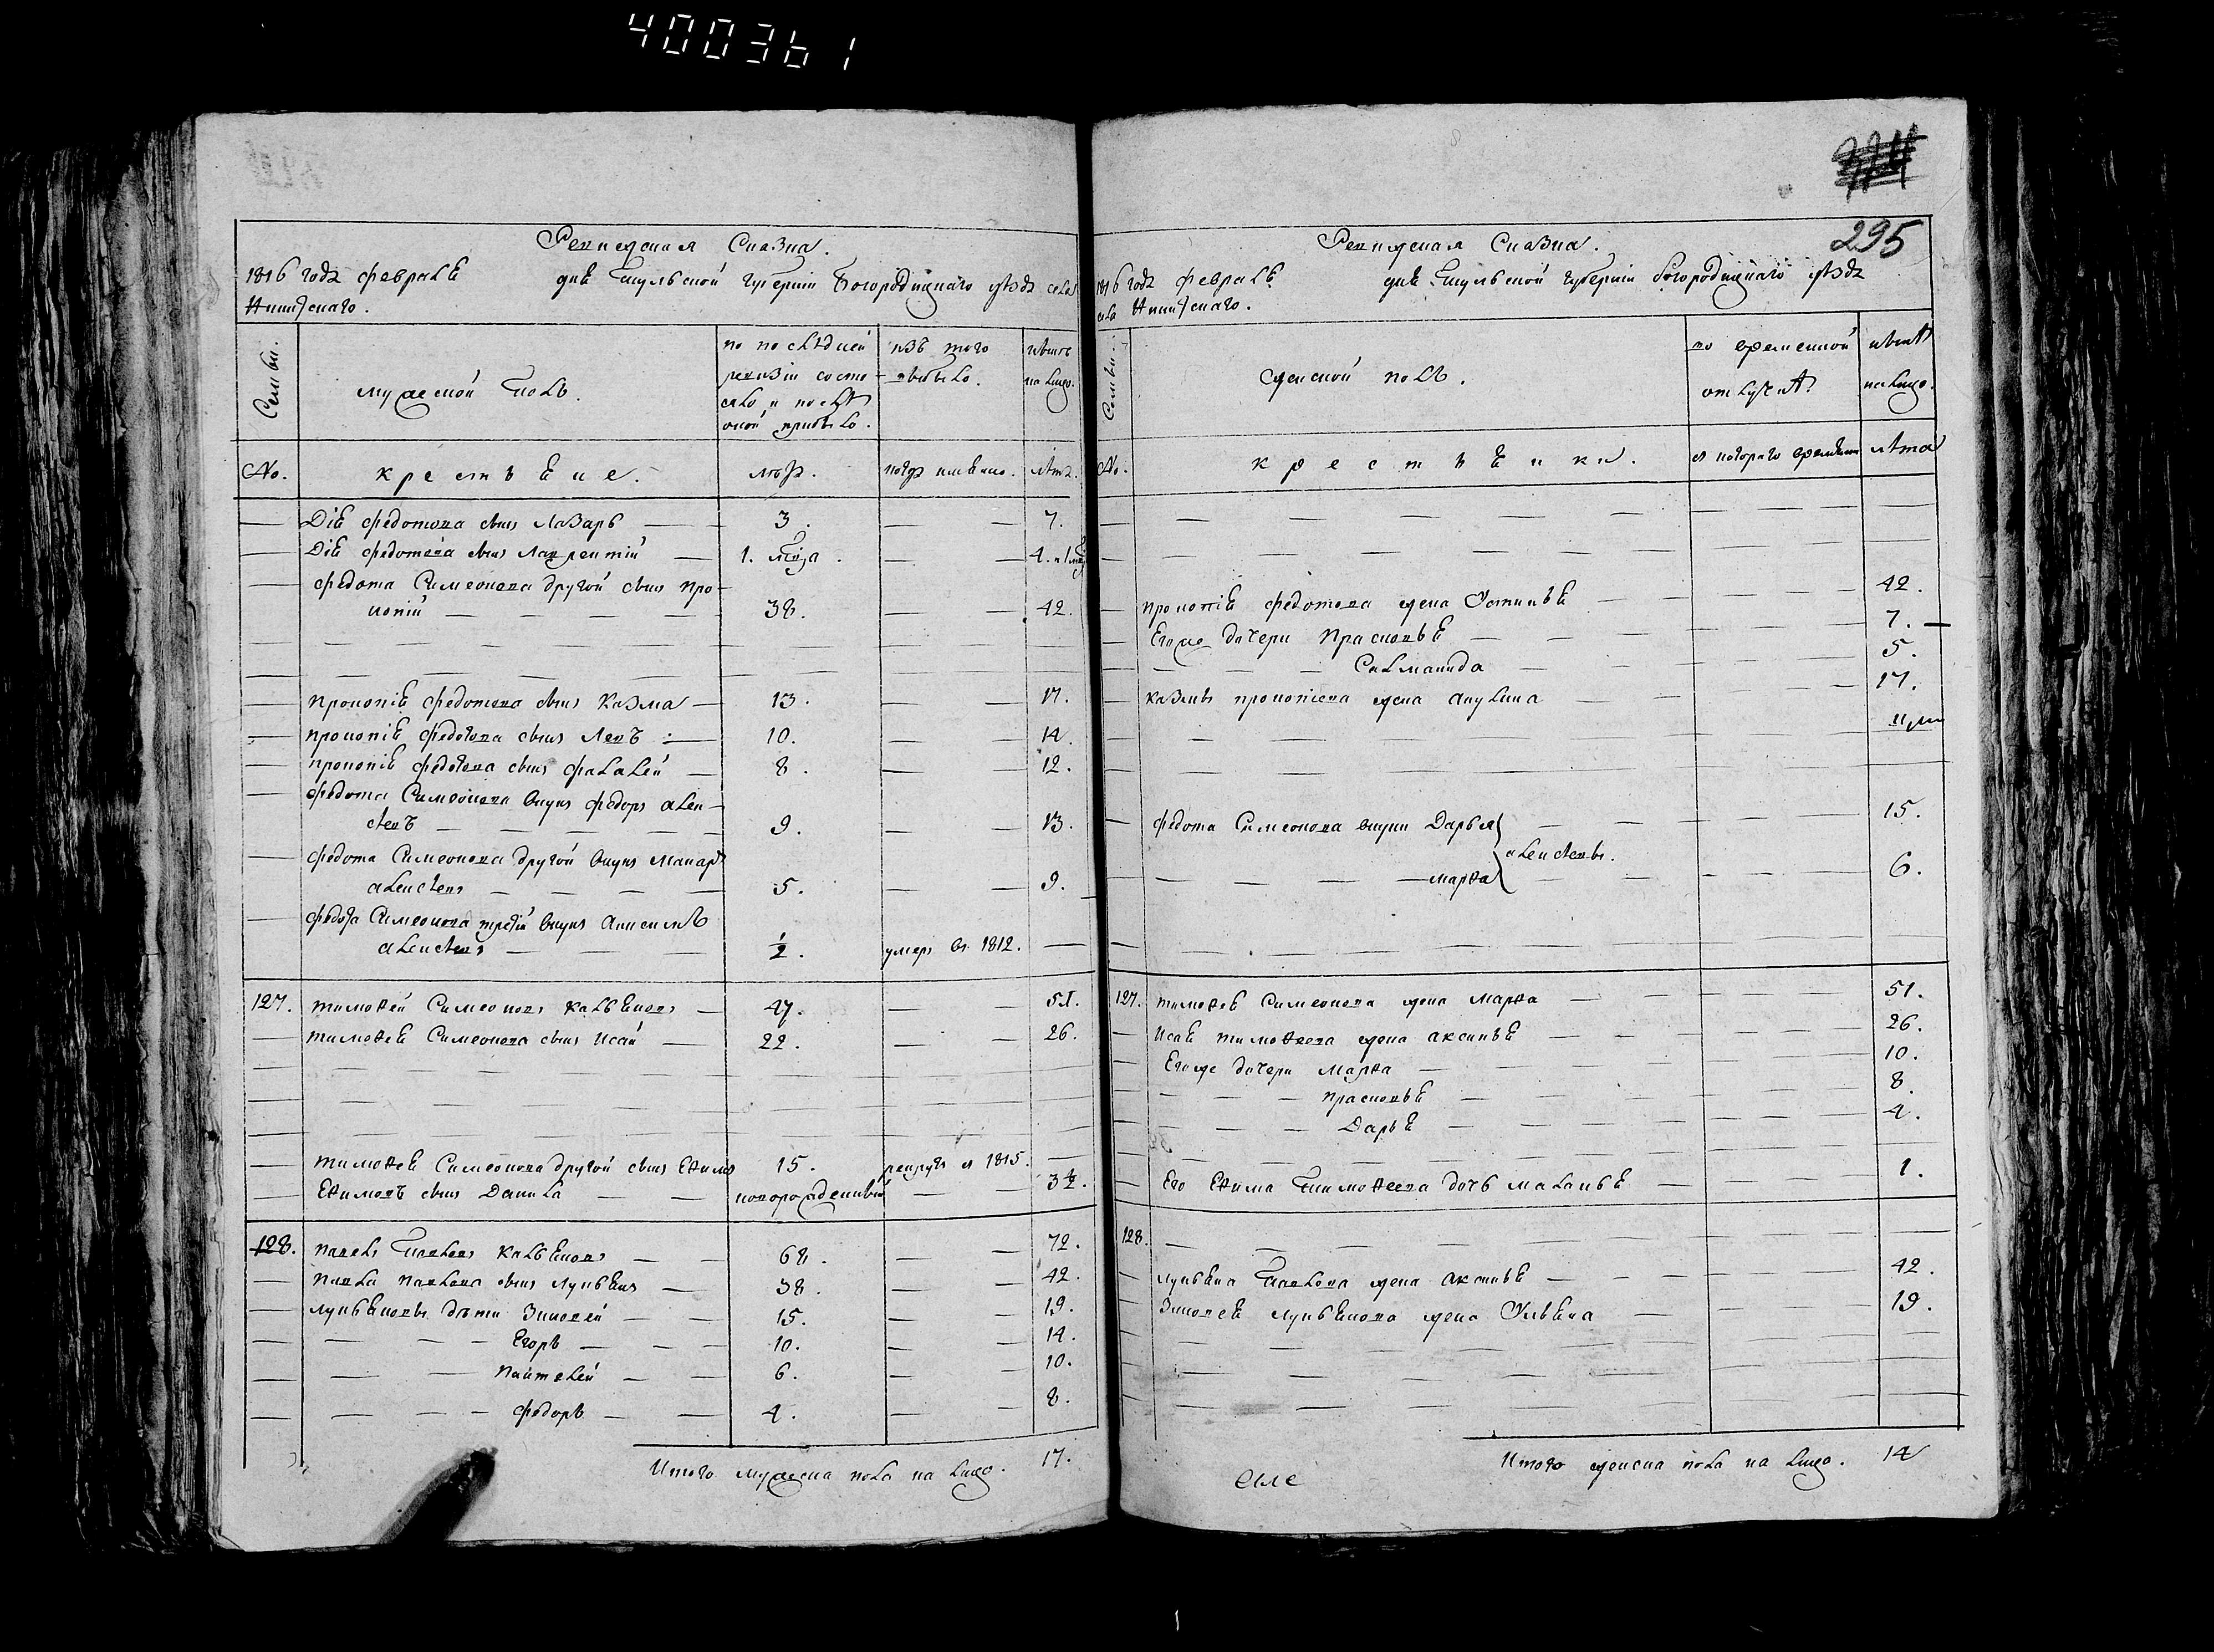 400361
295
Ревизская Сказка.
1816 года февраля дня Тульской губернии Богородицкаго уѣзда села
Никитскаго.
Семьи.
мужеской полъ.
по послѣдней
ревизіи состо
яло и послѣ
оной прибыло.
изъ того
выбыло.
нынѣ
на лицо.
No.
крестьяне.
лѣта.
когда именно.
лѣта.
Діѧ Федотова сынъ Лазарь — 3. — 7.
Федотова сынъ Лаврентий — 1. — 4.
Федота Симеонова другой сынъ Про-
копій — 38. — 42.
Прокопія Федотова сынъ Казма — 13. — 17.
Прокопія Федотова сынъ Левъ — 10. — 14.
Прокопія Федотова сынъ Фалалей — 8. — 12.
Федота Симеонова внукъ Федоръ Алек-
сѣевъ — 9. — 13.
Федота Симеонова другой внукъ Макаръ
Алексѣевъ — 5. — 9.
Федота Симеонова третій внукъ Анисимъ
Алексѣевъ — 1/2. умеръ въ 1812. —
127. Тимоѳей Симеоновъ — 47. — 51.
Тимоѳея Симеонова сынъ Исай — 22. — 26.
Тимоѳея Симеонова другой сынъ Еѳимъ 15. рекрутъ в 1815. —
Еѳимовъ сынъ Данила — новорожденный — 3 1/2.
128. Павелъ Павловъ — 68. — 72.
Павла Павлова сынъ Лукьянъ — 38. — 42.
Лукьяновы дѣти Зиновей — 15. — 19.
Егоръ — 10. — 14.
Пантелей — 6. — 10.
Федоръ — 4. — 8.
Итого мужеска пола на лицо. 17.
Ревизская Сказка.
1816 года февраля дня Тульской губернии Богородицкаго уѣзда
села Никитскаго.
Семьи.
Женской полъ.
во временной
отлучкѣ
нынѣ
на лицо.
No.
крестьянки.
с котораго времени
лѣта
Прокопія Федотова жена Устинья — 42.
Егоже дочери Прасковья — 7.
Салманида — 5.
Казмы Прокопіева жена Акулина — 17.
Федота Симеонова внуки Дарья — 15.
Алексѣевы.
Марѳа — 6.
127. Тимоѳея Симеонова жена Марѳа — 51.
Исая Тимоѳеева жена Аксинья — 26.
Егоже дочери Марѳа — 10.
Прасковья — 8.
Дарья — 4.
Его Еѳима Тимоѳеева дочь Маланья — 1.
128.
Лукьяна Павлова жена Аксинья — 42.
Зиновея Лукьянова жена Ульяна — 19.
Итого женска пола на лицо. 14